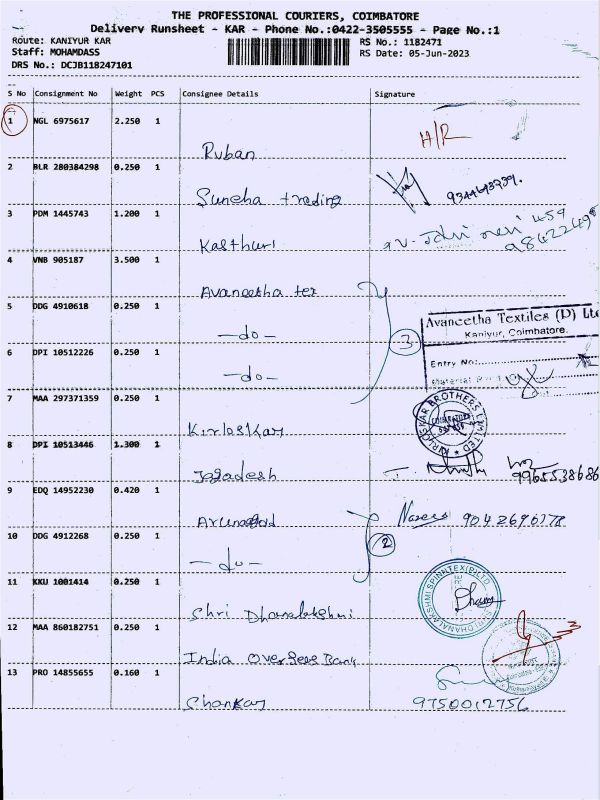 THE PROFESSIONAL COURIERS, COIMBATORE
Delivery Runsheet - KAR - Phone No.:0422-3505555 - Page No.:1
Route: KANIYUR KAR RS No.: 1182471
Staff: MOHAMDASS RS Date: 05-Jun-2023
DRS No.: DCJB118247101
S No Consignment No Weight PCS Consignee Details Signature
1 NGL 6975617 2.250 1 H/R
Ruban
2 BLR 280384298 0.250 1
Suneha trading
3 PDM 1445743 1.200 1
Kasthuri
4 VNB 905187 3.500 1
Avaneetha tex
5 DDG 4910618 0.250 1
-do- 3
Avaneetha Textiles (P) Ltd
Kaniyur, Coimbatore.
6 DPI 10512226 0.250 1
Entry No:
-do-
7 MAA 297371359 0.250 1
KIRLOSKAR BROTHERS LIMITED
Kirloskar
8 DPI 10513446 1.300 1
Jagadesh 9965538686
9 EDQ 14952230 0.420 1
Naseer 9042690178
10 DDG 4912268 0.250 1 2
-do-
11 KKU 1001414 0.250 1
Shri Dhanalakshmi
12 MAA 860182751 0.250 1
India Overseas Bank
13 PRO 14855655 0.160 1
Shankar 9750012756